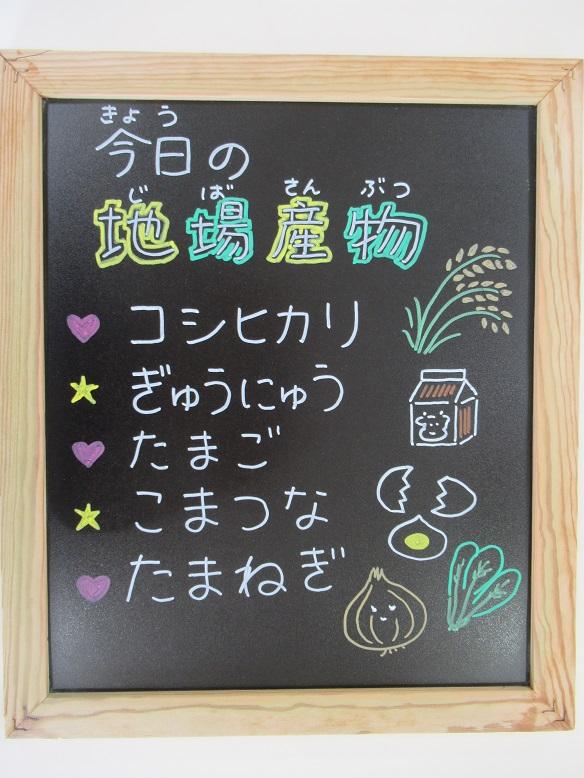 きょう
今日の
じばさんぶつ
地場産物
コシヒカリ
ぎゅうにゅう
たまご
こまつな
たまねぎ